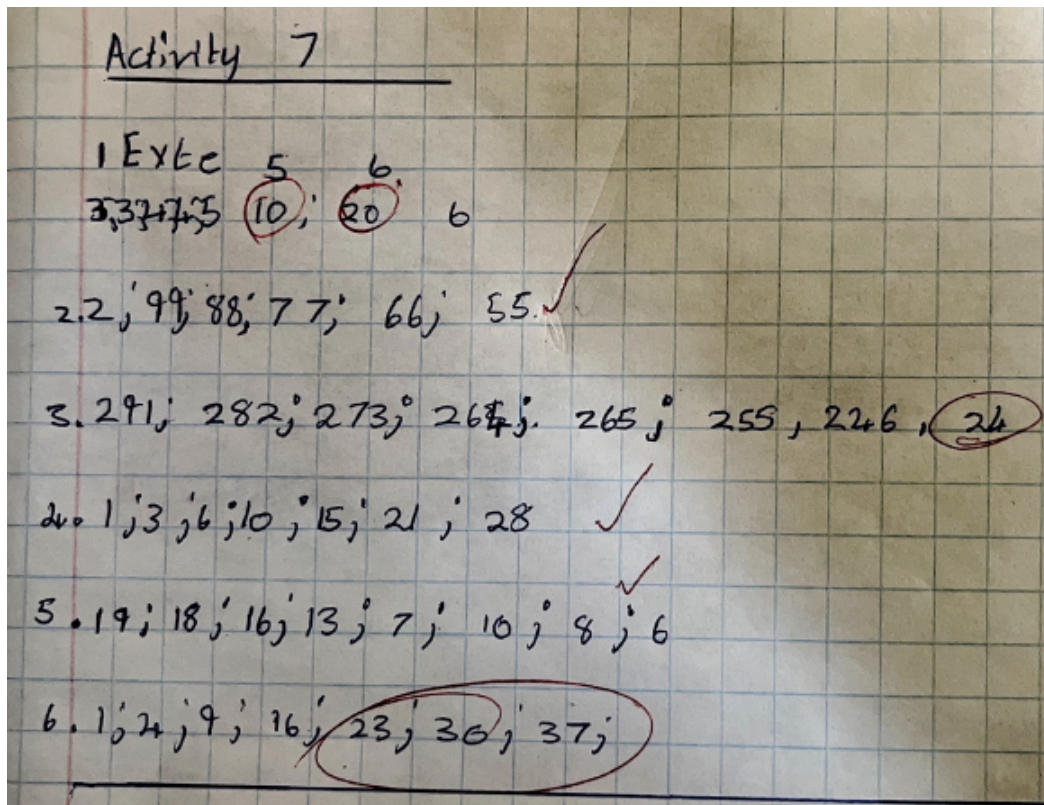 Activity 7
1 Exte 5 6
10; 20 6
2.2; 99; 88; 77; 66; 55.
3. 291; 282; 273; 264; 265; 255, 246, 24
4. 1; 3; 6; 10; 15; 21; 28
5. 19; 18; 16; 13; 7; 10; 8; 6
6. 1; 4; 9; 16; 23; 30; 37;